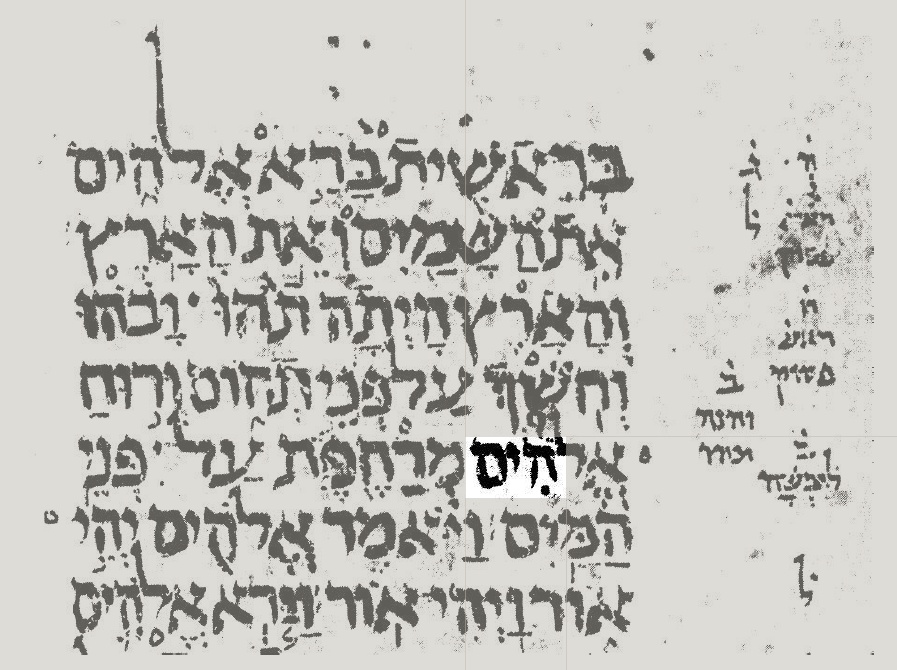 בראשית ברא אלהים
את השמים ואת הארץ
והארץ היתה תהו ובהו
וחשך על פני תהום ורוח
אלהים מרחפת על פני
המים ויאמר אלהים יהי
אור ויהי אור וירא אלהים